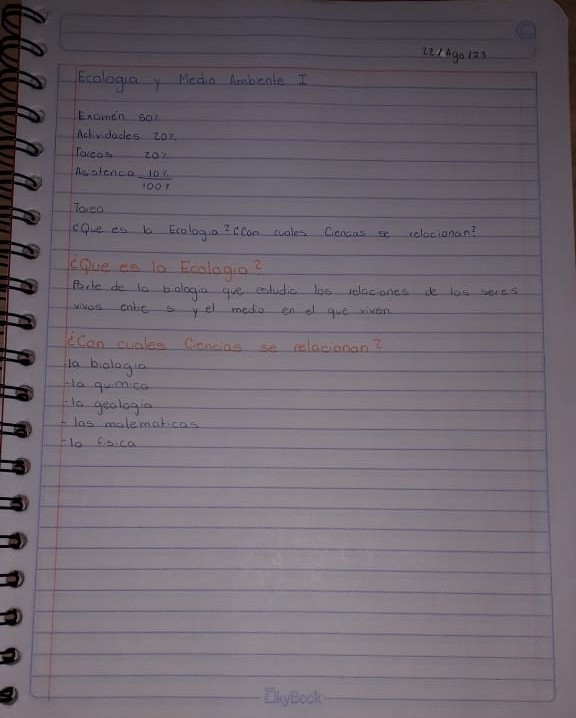 22/Ago/23
Ecologia y Medio Ambiente I
Examén 50%
Actividades 20%
Tareas 20%
Asistenca 10%
100%
Tarea
¿Que es la Ecologia? ¿Con cuales Ciencas se relacionan?
¿Que es la Ecologia?
Parte de la biologia que estudia las relaciones de los seres
vivos entre si y el medio en el que viven
¿Con cuales Ciencias se relacionan?
-la biologia
-la quimica
-la geologia
- las matematicas
-la fisica
SkyBook